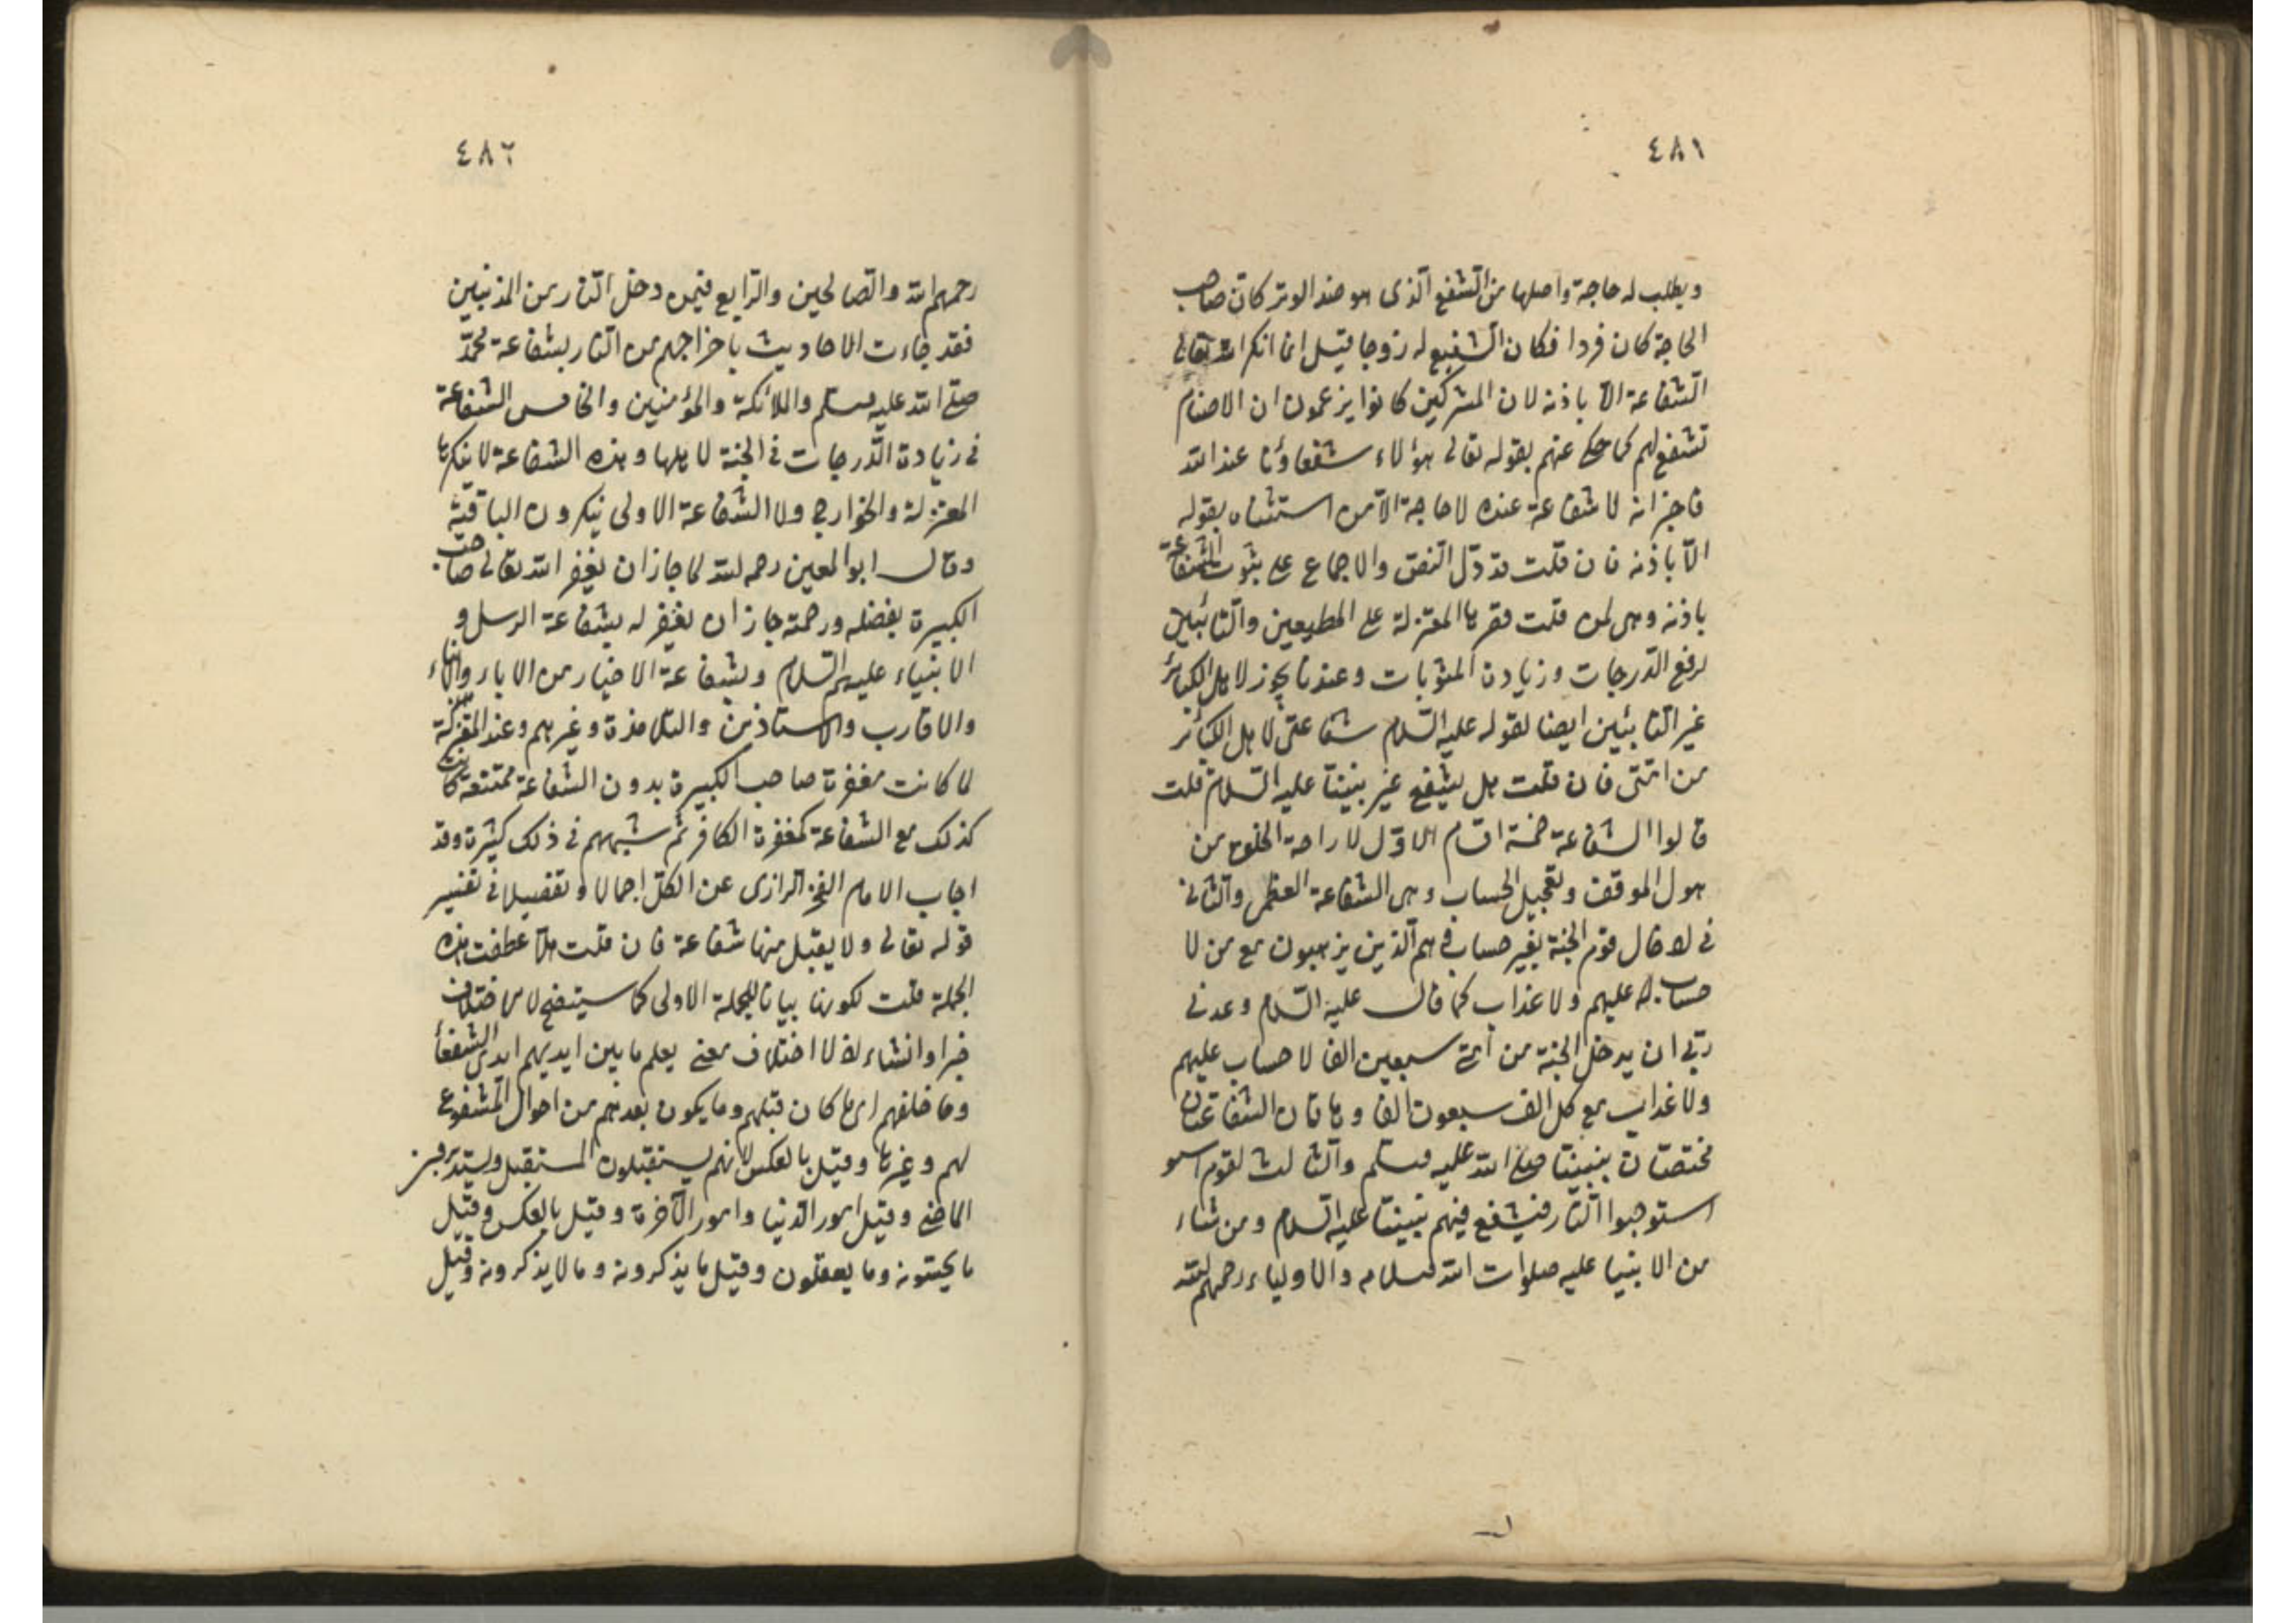 ٤٨١
ويطلب له حاجة واصلها من الشفع الذى هو ضد الوتر كان صاحب
الحاجة كان فردا فكان الشفيع له زوجا قيل انما انكر الله تعالى
الشفاعة الا باذنه لان المشركين كانوا يزعمون ان الاصنام
تشفع لهم كما حكى عنهم بقوله تعالى هؤلاء شفعاؤنا عند الله
فاخبر انه لا شفاعة عنده لاحاجة الا من استثناه بقوله
الا باذنه فان قلت قد دل النص والاجماع على ثبوت الشفاعة
باذنه وهى لمن قلت قصرها المعتزلة على المطيعين والتائبين
لرفع الدرجات وزيادة المثوبات وعندنا يجوز لاهل الكبائر
غير التائبين ايضا لقوله عليه السلام شفاعتى لاهل الكبائر
من امتى فان قلت هل يشفع غير نبينا عليه السلام قلت
قالوا الشفاعة خمسة اقسام الاول لاراحة الخلق من
هول الموقف وتعجيل الحساب وهى الشفاعة العظمى والثانى
فى ادخال قوم الجنة بغير حساب وهم الذين يذهبون مع من لا
حساب عليهم ولا عذاب كما قال عليه السلام وعدنى
ربى ان يدخل الجنة من امتى سبعين الفا لا حساب عليهم
ولا عذاب مع كل الف سبعون الفا وهاتان الشفاعتان
مختصتان بنبينا صلى الله عليه وسلم والثالث لقوم
استوجبوا النار فيشفع فيهم نبينا عليه السلام ومن شاء
من الانبيا عليه صلوات الله وسلامه والاولياء رحمهم الله
٤٨٢
رحمهم الله والصالحين والرابع فيمن دخل النار من المذنبين
فقد جاءت الاحاديث باخراجهم من النار بشفاعة محمد
صلى الله عليه وسلم والملائكة والمؤمنين والخامس الشفاعة
فى زيادة الدرجات فى الجنة لاهلها وهذه الشفاعة لا ينكرها
المعتزلة والخوارج ولا الشفاعة الاولى ينكرون الباقية
وقال ابو المعين رحمه الله لما جاز ان يغفر الله تعالى صاحب
الكبيرة بفضله ورحمته جاز ان يغفر له بشفاعة الرسل و
الانبياء عليهم السلام وبشفاعة الاخيار من الاباء والابناء
والاقارب والاستاذين والتلامذة وغيرهم وعند المعتزلة
لما كانت مغفرة صاحب الكبيرة بدون الشفاعة ممتنعة كانت
كذلك مع الشفاعة كمغفرة الكافر ثم شبههم فى ذلك كثيرة وقد
اجاب الامام الفخر الرازى عن الكل اجمالا وتفصيلا فى تفسير
قوله تعالى ولا يقبل منها شفاعة فان قلت هلا عطفت هذه
الجملة قلت لكونها بيانا للجملة الاولى كما سيتضح لا لاختلاف
خبرا وانشاء اذ لا اختلاف معنى يعلم ما بين ايديهم ايدى الشفعاء
وما خلفهم اى ما كان قبلهم وما يكون بعدهم من احوال المشفوع
لهم وغيرها وقيل بالعكس لانهم يستقبلون المستقبل ويستدبرون
الماضى وقيل امور الدنيا وامور الآخرة وقيل بالعكس وقيل
ما يحسونه وما يعقلون وقيل ما يذكرونه وما لا يذكرونه وقيل